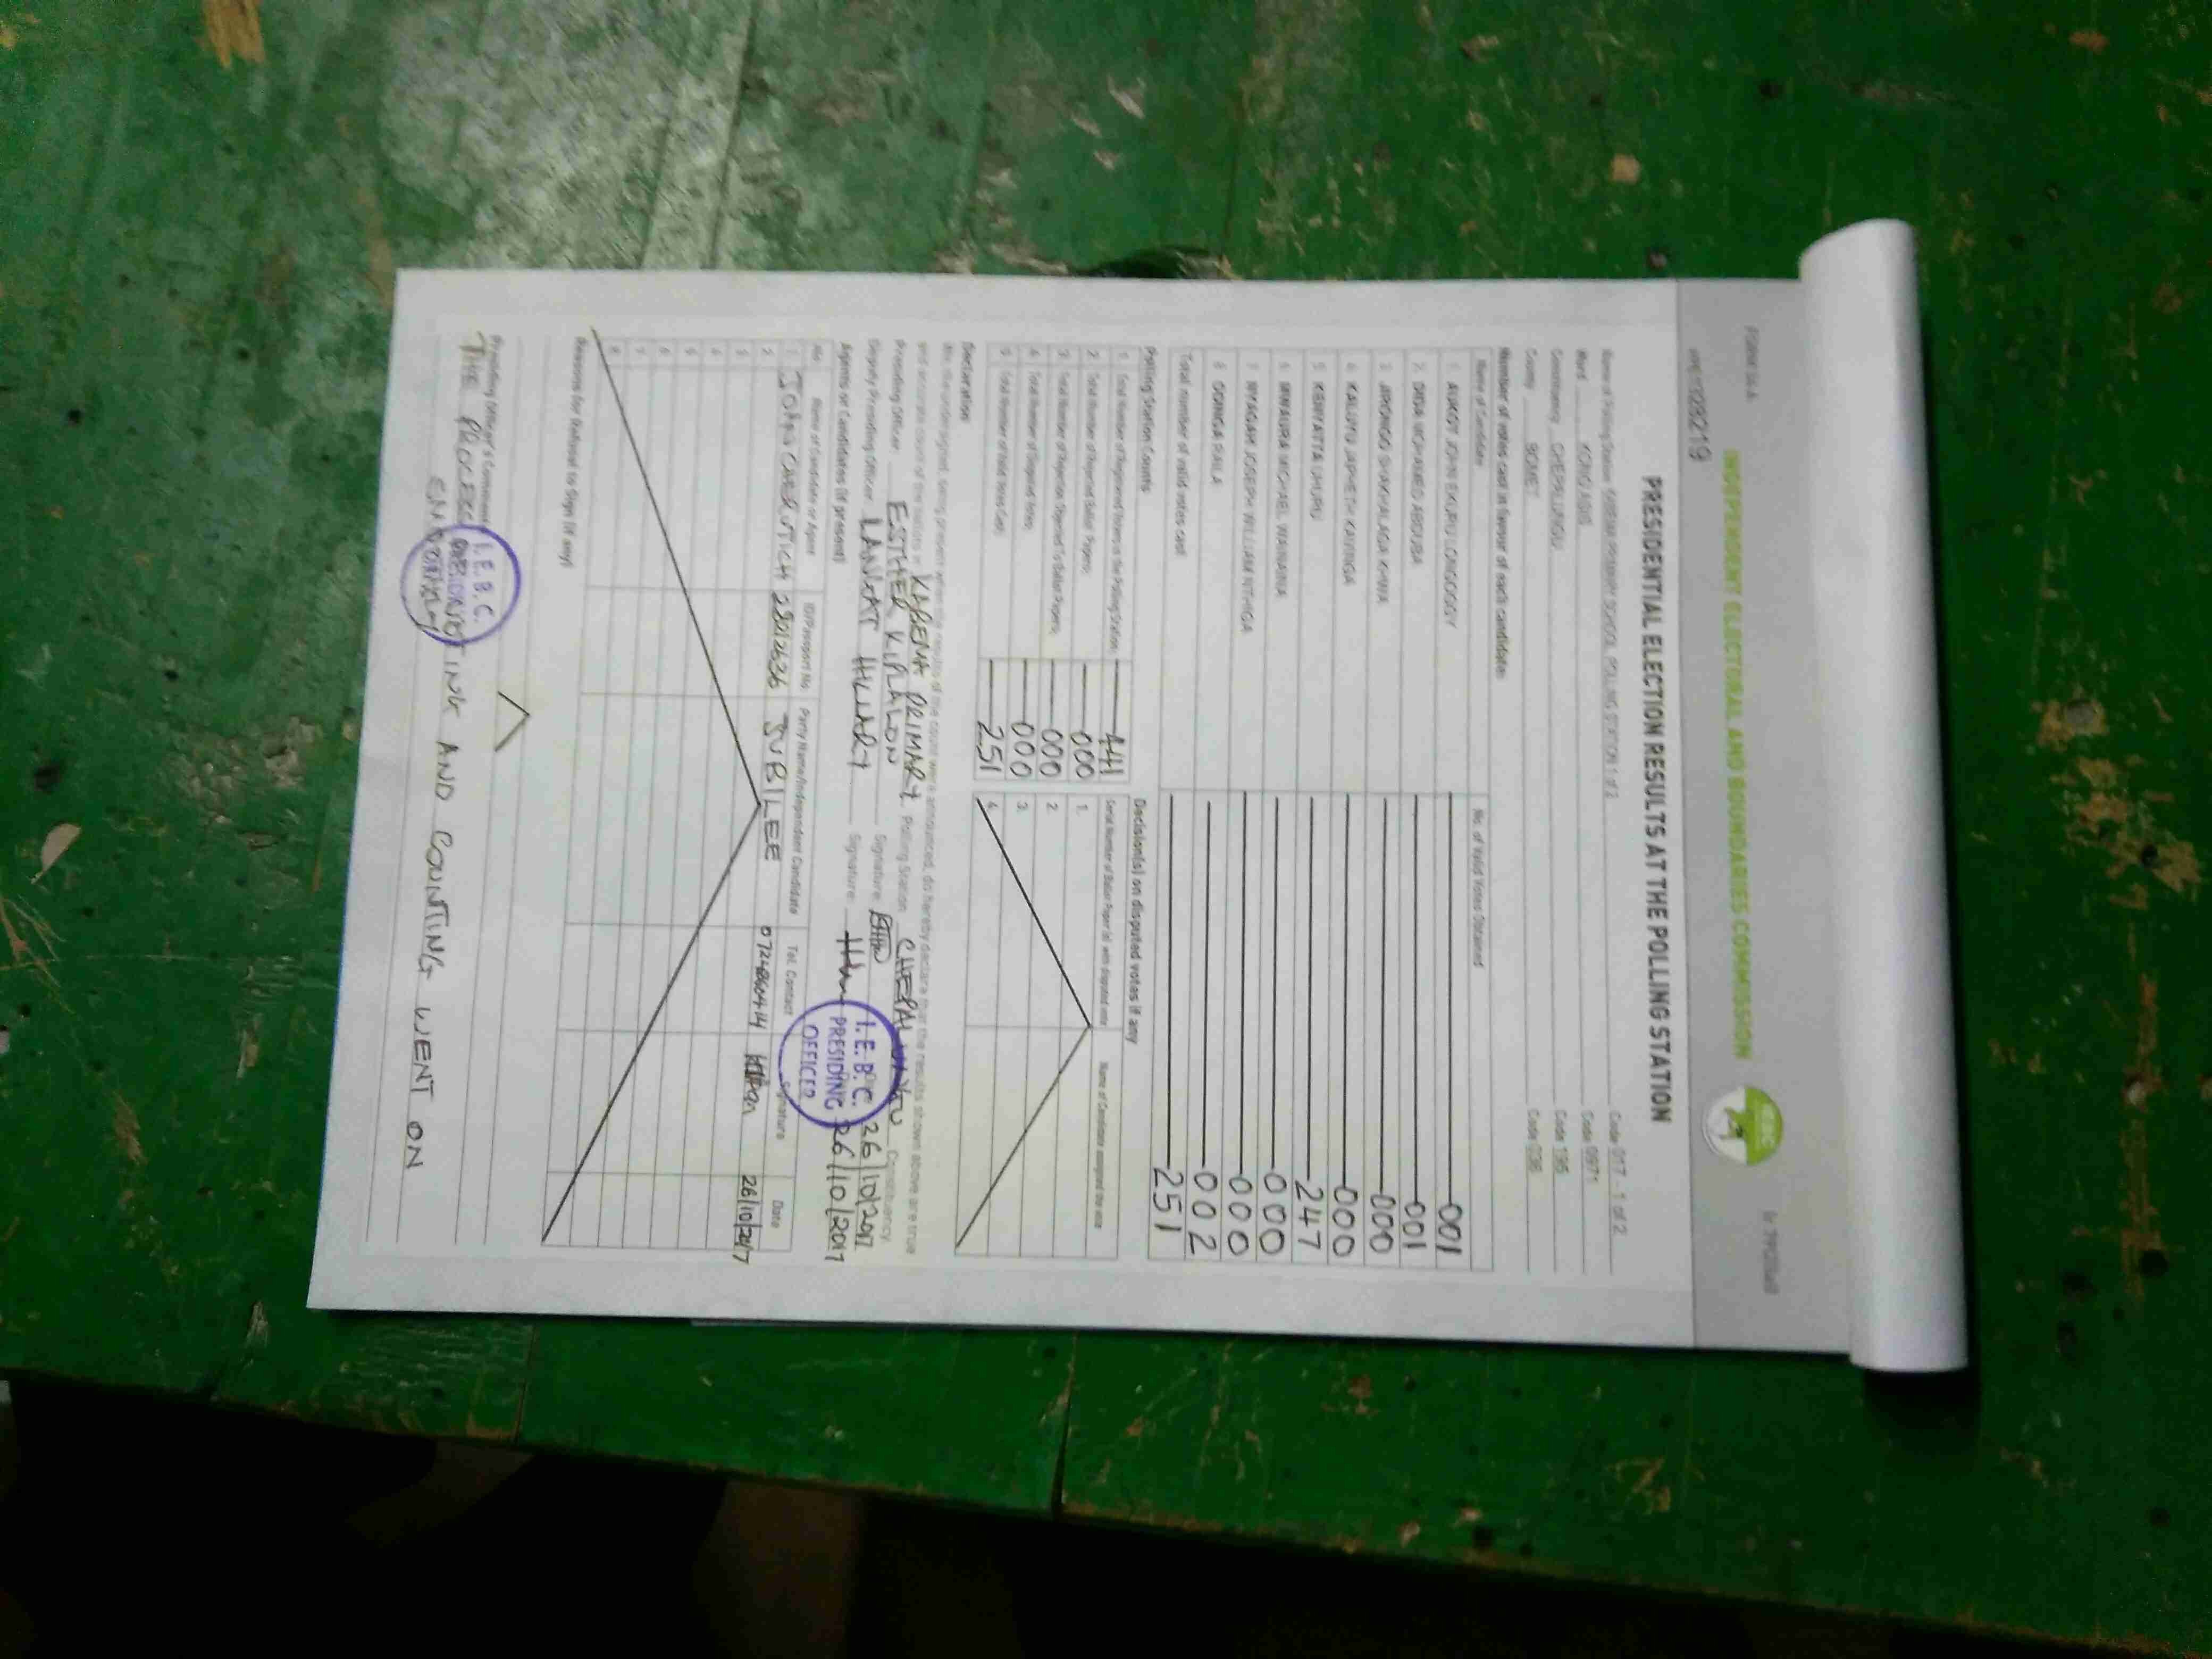 FORM 34A
INDEPENDENT ELECTORAL AND BOUNDARIES COMMISSION
IEBC
PRESIDENTIAL ELECTION RESULTS AT THE POLLING STATION
Name of Polling Station KABEMA PRIMARY SCHOOL POLLING STATION 1 of 2 Code 017 - 1 of 2
Ward KONG'ASIS Code 0971
Constituency CHEPALUNGU Code 195
County BOMET Code 036
Number of votes cast in favour of each candidate:
Name of Candidate No. of Valid Votes Obtained
1. AUKOT JOHN EKURU LONGOGGY 001
2. DIDA MOHAMED ABDUBA 001
3. JIRONGO SHAKHALAGA KHWA 000
4. KALUYU JAPHETH KAVINGA 000
5. KENYATTA UHURU 247
6. MWAURA MICHAEL WAINAINA 000
7. NYAGAH JOSEPH WILLIAM NTHIGA 000
8. ODINGA RAILA 002
Total number of valid votes cast 251
Polling Station Counts
1. Total Number of Registered Voters in the Polling Station: 441
2. Total Number of Rejected Ballot Papers: 000
3. Total Number of Rejection Objected To Ballot Papers: 000
4. Total Number of Disputed Votes: 000
5. Total Number of Valid Votes Cast: 251
Decision(s) on disputed votes if any
Serial Number of Ballot Paper (s) with disputed vote Name of Candidate assigned the vote
1.
2.
3.
4.
Declaration
We, the undersigned, being present when the results of the count were announced, do hereby declare that the results shown above are true
and accurate count of the ballots in KABEMA PRIMARY Polling Station CHEPALUNGU Constituency
Presiding Officer ESTHER KIPLALON Signature: 26/10/2017
Deputy Presiding Officer LANGAT HILLARY Signature: 26/10/2017
I.E.B.C.
PRESIDING
OFFICER
Agents or Candidates (if present)
No. Name of Candidate or Agent ID/Passport No. Party Name/Independent Candidate Tel. Contact Signature Date
1. 28012636 JUBILEE 26/10/2017
2.
3.
4.
5.
6.
7.
8.
Reasons for Refusal to Sign (if any)
Presiding Officer's Comments
THE PROCESS OF VOTING AND COUNTING WENT ON
I.E.B.C.
PRESIDING